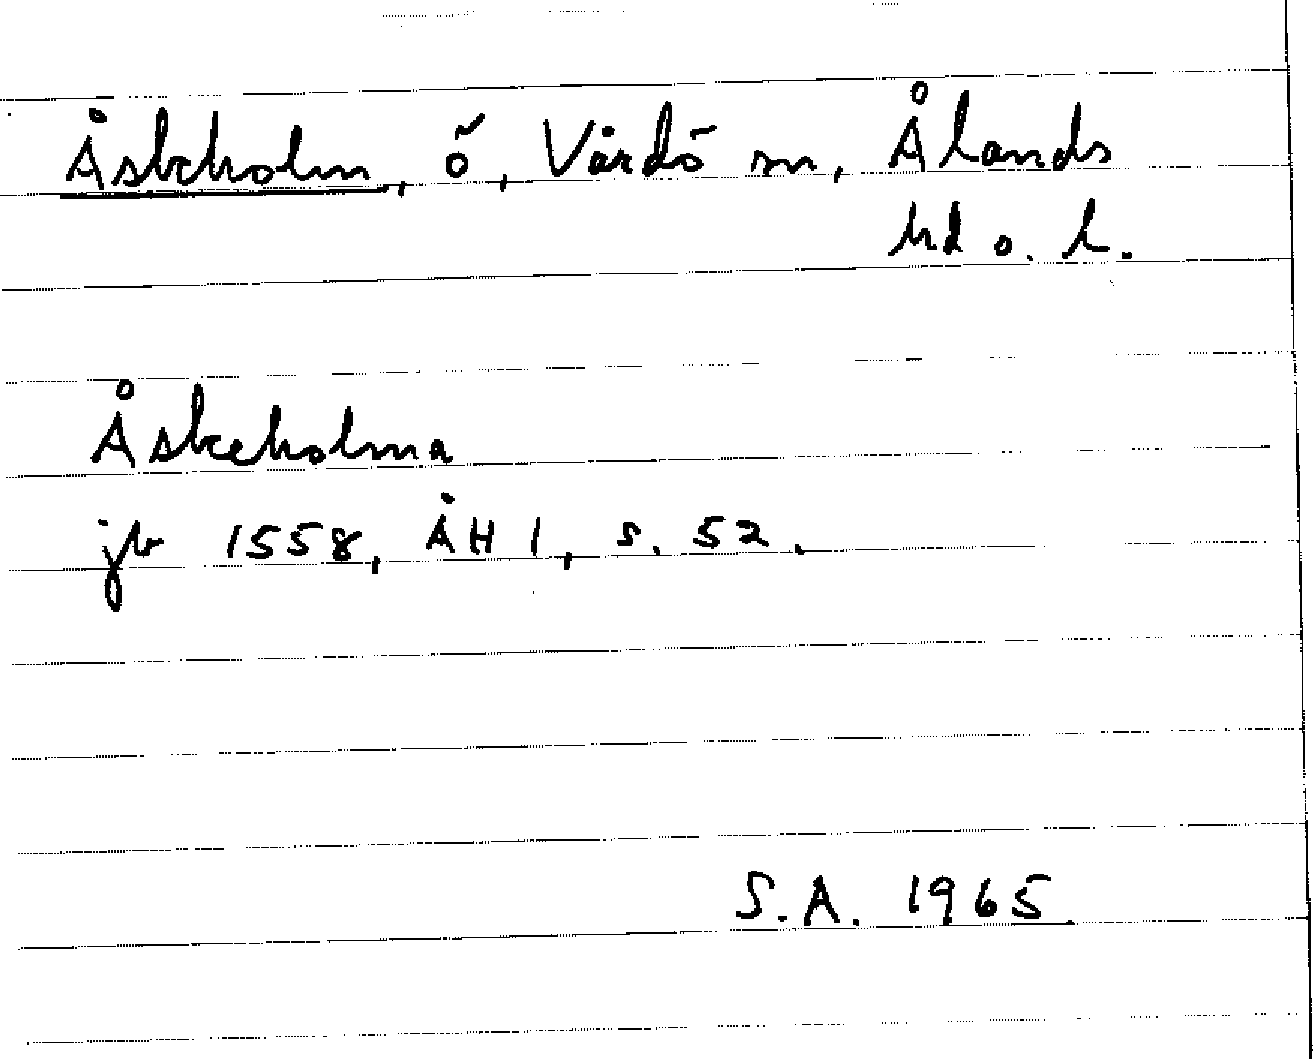 Åskeholm, ö, Vårdö sn, Ålands
hd o. l.
Åskeholma
jb 1558, ÅH 1, s. 52.
S.A. 1965.